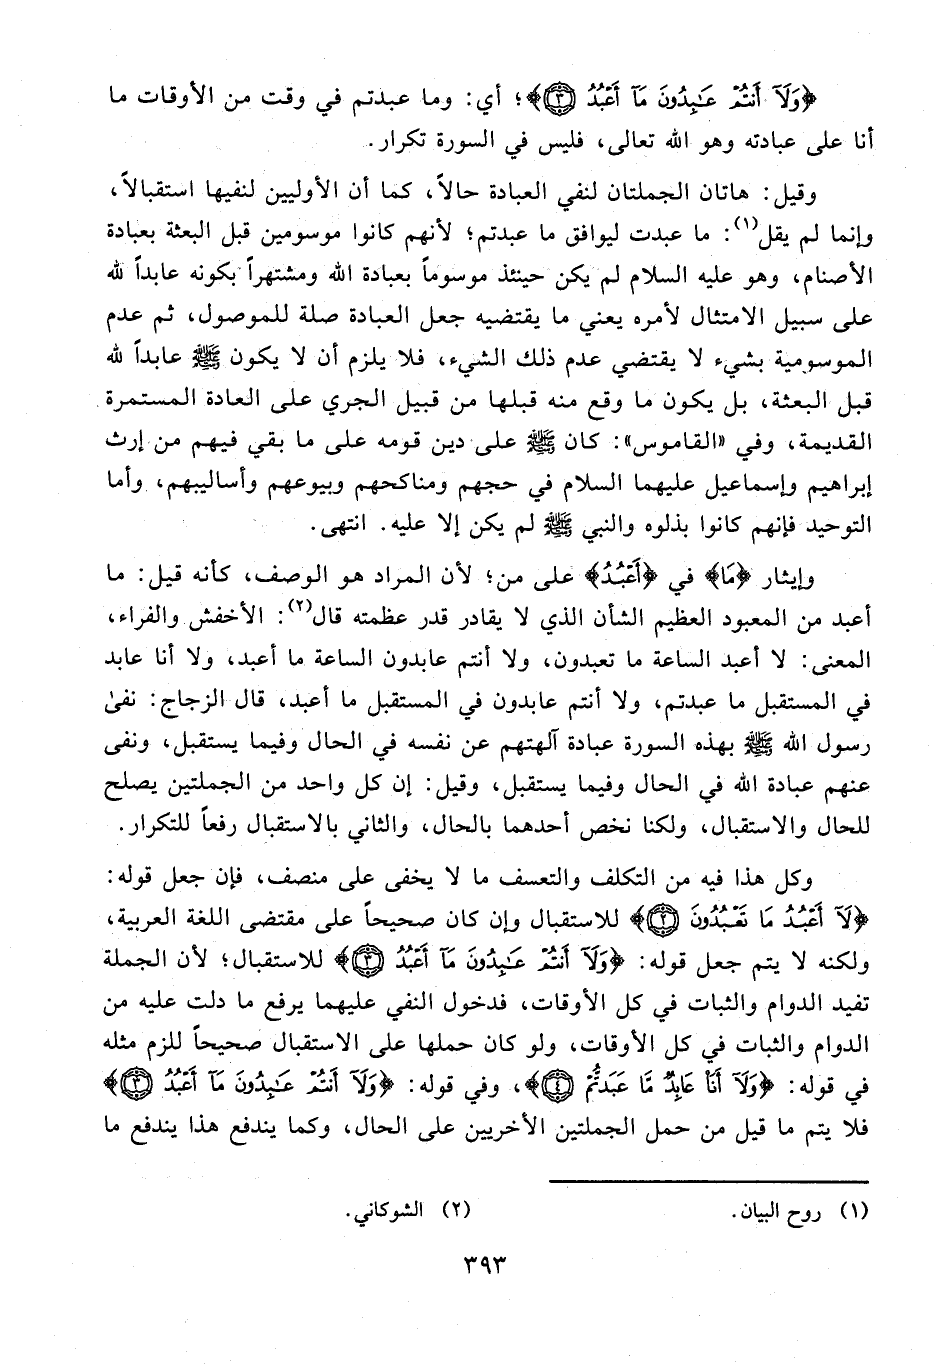 ﴿وَلَآ أَنتُمْ عَـٰبِدُونَ مَآ أَعْبُدُ ۝٣﴾؛ أي: وما عبدتم في وقت من الأوقات ما
أنا على عبادته وهو الله تعالى، فليس في السورة تكرار.
وقيل: هاتان الجملتان لنفي العبادة حالاً، كما أن الأوليين لنفيها استقبالاً،
وإنما لم يقل(١): ما عبدت ليوافق ما عبدتم؛ لأنهم كانوا موسومين قبل البعثة بعبادة
الأصنام، وهو عليه السلام لم يكن حينئذ موسوماً بعبادة الله ومشتهراً بكونه عابداً لله
على سبيل الامتثال لأمره يعني ما يقتضيه جعل العبادة صلة للموصول، ثم عدم
الموسومية بشيء لا يقتضي عدم ذلك الشيء، فلا يلزم أن لا يكون ﷺ عابداً لله
قبل البعثة، بل يكون ما وقع منه قبلها من قبيل الجري على العادة المستمرة
القديمة، وفي «القاموس»: كان ﷺ على دين قومه على ما بقي فيهم من إرث
إبراهيم وإسماعيل عليهما السلام في حجهم ومناكحهم وبيوعهم وأساليبهم، وأما
التوحيد فإنهم كانوا بذلوه والنبي ﷺ لم يكن إلا عليه. انتهى.
وإيثار ﴿مَا﴾ في ﴿أَعْبُدُ﴾ على من؛ لأن المراد هو الوصف، كأنه قيل: ما
أعبد من المعبود العظيم الشأن الذي لا يقادر قدر عظمته قال(٢): الأخفش والفراء،
المعنى: لا أعبد الساعة ما تعبدون، ولا أنتم عابدون الساعة ما أعبد، ولا أنا عابد
في المستقبل ما عبدتم، ولا أنتم عابدون في المستقبل ما أعبد، قال الزجاج: نفىٰ
رسول الله ﷺ بهذه السورة عبادة آلهتهم عن نفسه في الحال وفيما يستقبل، ونفى
عنهم عبادة الله في الحال وفيما يستقبل، وقيل: إن كل واحد من الجملتين يصلح
للحال والاستقبال، ولكنا نخص أحدهما بالحال، والثاني بالاستقبال رفعاً للتكرار.
وكل هذا فيه من التكلف والتعسف ما لا يخفى على منصف، فإن جعل قوله:
﴿لَآ أَعْبُدُ مَا تَعْبُدُونَ ۝٢﴾ للاستقبال وإن كان صحيحاً على مقتضى اللغة العربية،
ولكنه لا يتم جعل قوله: ﴿وَلَآ أَنتُمْ عَـٰبِدُونَ مَآ أَعْبُدُ ۝٣﴾ للاستقبال؛ لأن الجملة
تفيد الدوام والثبات في كل الأوقات، فدخول النفي عليهما يرفع ما دلت عليه من
الدوام والثبات في كل الأوقات، ولو كان حملها على الاستقبال صحيحاً للزم مثله
في قوله: ﴿وَلَآ أَنَا۠ عَابِدٌ مَّا عَبَدتُّمْ ۝٤﴾، وفي قوله: ﴿وَلَآ أَنتُمْ عَـٰبِدُونَ مَآ أَعْبُدُ ۝٣﴾
فلا يتم ما قيل من حمل الجملتين الأخريين على الحال، وكما يندفع هذا يندفع ما
(١) روح البيان. (٢) الشوكاني.
٣٩٣